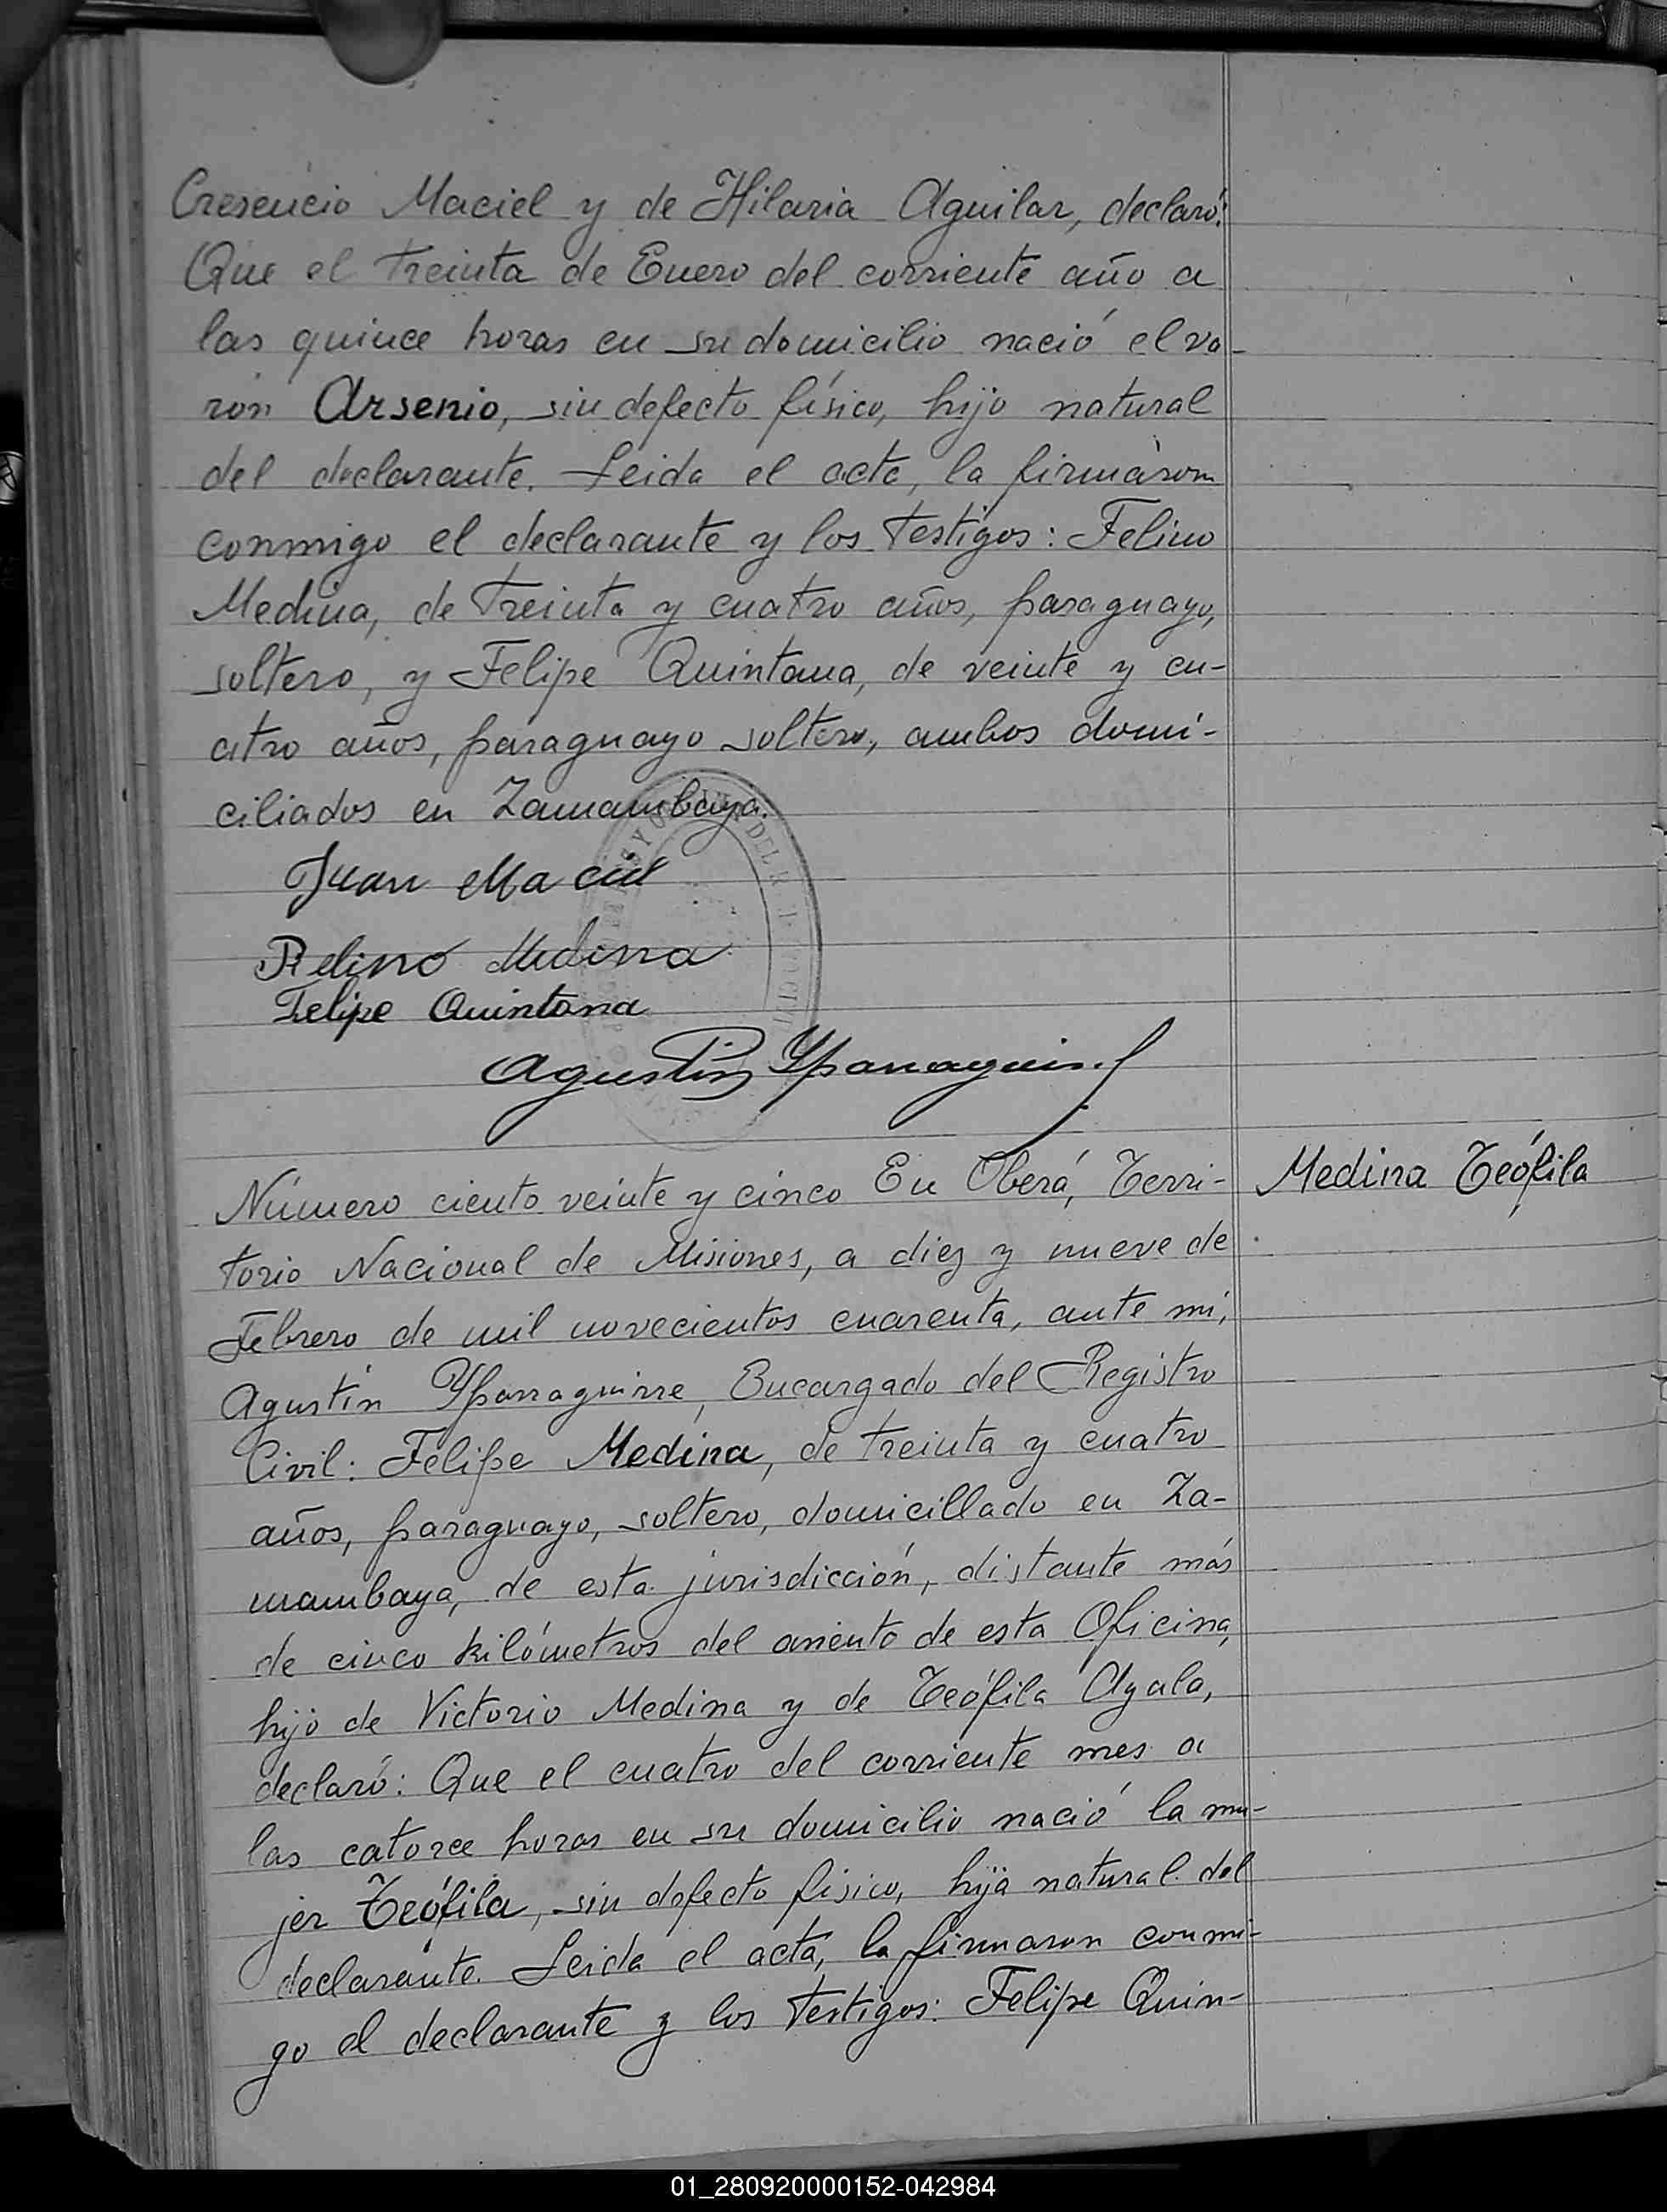 Cresencio Maciel y de Hilaria Aguilar, declaró:
Que el treinta de Enero del corriente año a
las quince horas en su domicilio nació el va-
ron Arsenio, sin defecto físico, hijo natural
del declarante. Leida el acta, la firmaron
conmigo el declarante y los testigos: Felino
Medina, de treinta y cuatro años, paraguayo,
soltero, y Felipe Quintana, de veinte y cu-
atro años, paraguayo soltero, ambos domi-
ciliados en Zamambaya.
Juan Maciel
Felino Medina
Felipe Quintana
Agustin Yparraguirre
Número ciento veinte y cinco En Oberá, Terri-
Medina Teófila
torio Nacional de Misiones, a diez y nueve de
Febrero de mil novecientos cuarenta, ante mí,
Agustín Yparraguirre, Encargado del Registro
Civil: Felipe Medina, de treinta y cuatro
años, paraguayo, soltero, domicillado en Za-
mambaya, de esta jurisdicción, distante más
de cinco kilómetros del asiento de esta Oficina,
hijo de Victorio Medina y de Teófila Ayala,
declaró: Que el cuatro del corriente mes a
las catorce horas en su domicilio nació la mu-
jer Teófila, sin defecto físico, hija natural del
declarante. Leida el acta, la firmaron conmi-
go el declarante y los testigos: Felipe Quin-
01_280920000152-042984